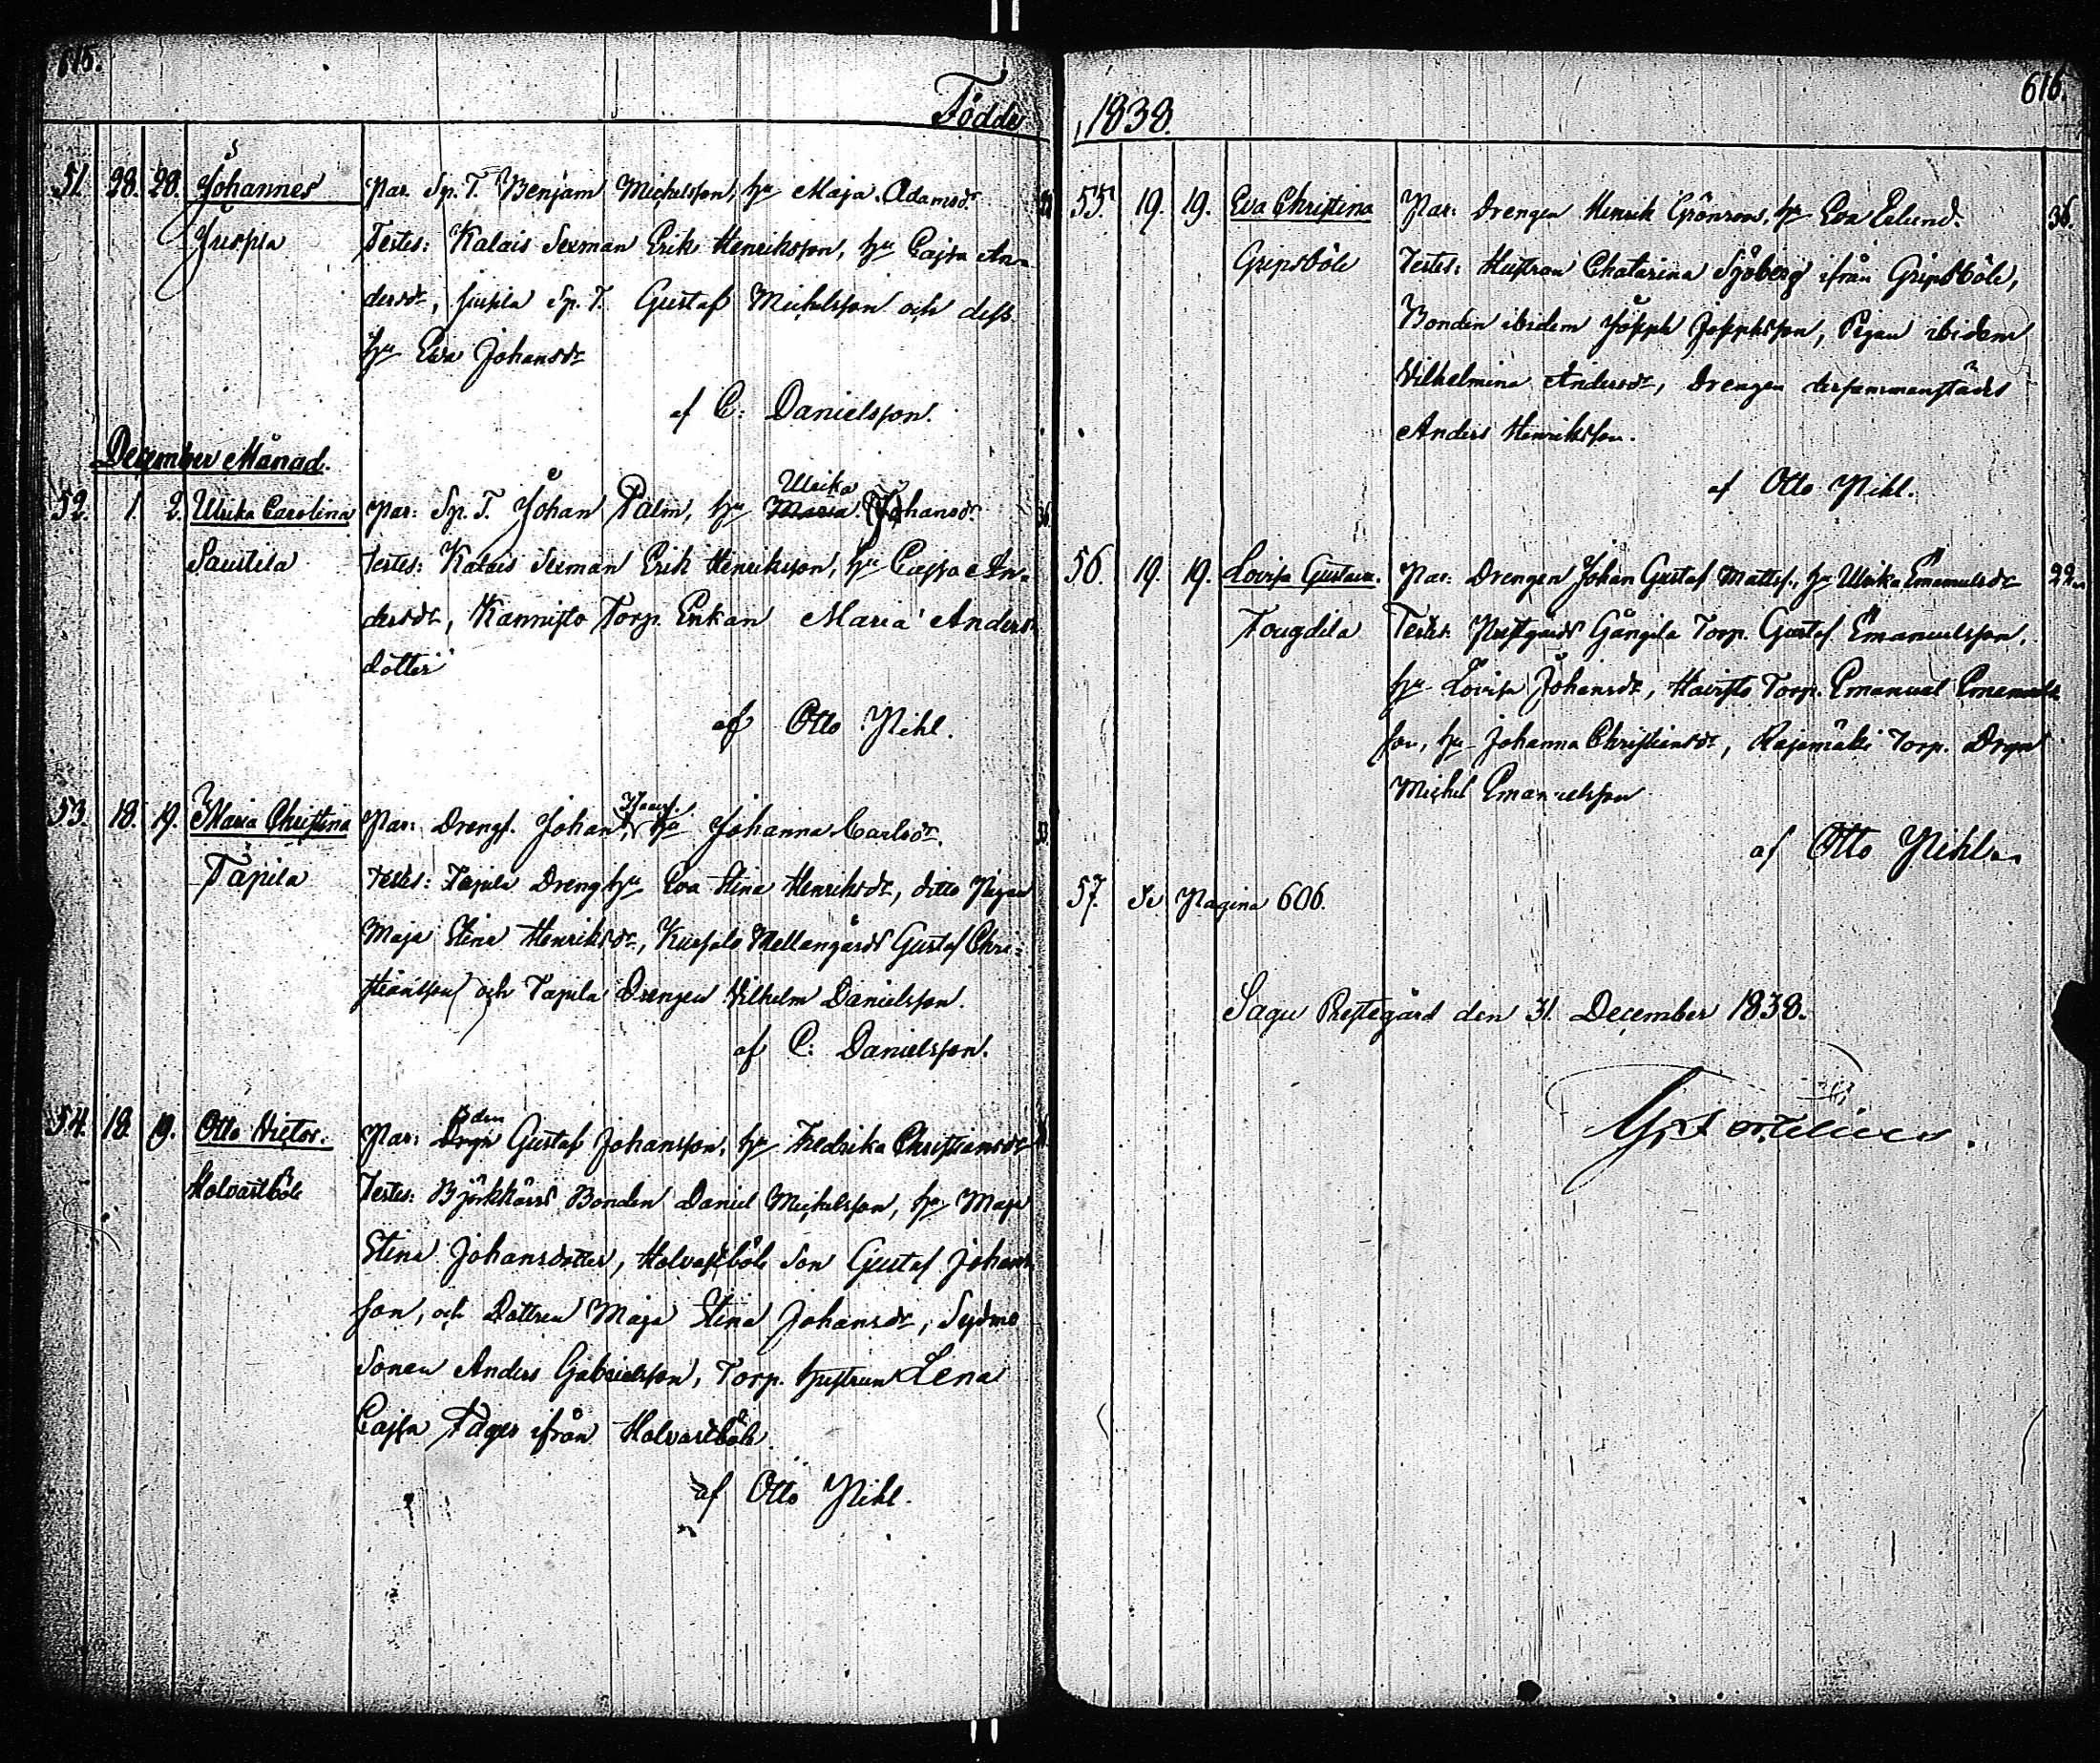 615.
Födde
51. 28. 28. Johannes Par. Sp. T. Benjam Michelsson, hu Maja Adamsdr.
Juspila Testes: Kalais Sexman Erik Henriksson, hu Cajsa An-
dersdr, Juspila Sp. T. Gustaf Michelsson och dess
hu Eva Johansdr
af C: Danielsson.
December Månad.
52. 1. 2. Ulrika Carolina Par: Sp. T. Johan Palm, hu Maria Ulrika Johansdr. 36.
Saustila Testes: Kalais Sexman Erik Henriksson, hu Cajsa An-
dersdr, Kannisto Torp. Enkan Maria Anders
dotter
af Otto Pihl.
53. 18. 19. Maria Christina Par: Drengf. Johan, hu Johanna Carlsdr. 33
Tapila Testes: Tapila Dreng hu Eva Stina Henriksdr, ditto Pigan
Maja Stina Henriksdr, Mellangårds Gustaf Chri-
stiansson och Tapila Drengen Vilhelm Danielsson.
af C: Danielsson.
54. 18. 19. Otto Victor. Par: Drgn Bden Gustaf Johansson, hu Fredrika Christiansdr
Holvastböle Testes: Björkkärrs Bonden Daniel Michelsson, hu Maja
Stina Johansdotter, Holvastböle Son Gustaf Johans
son, och Dottren Maja Stina Johansdr, Sydmo
Sonen Anders Gabrielsson, Torp. hustrun Lena
Cajsa Fager ifrån Holvastböle.
af Otto Pihl.
616.
1838.
55. 19. 19. Eva Christina Par: Drengen Henrik Grönroos, hu Eva Eklund. 36.
Gripsböle Testes: Hustrun Chatarina Sjöberg ifrån Gripsböle,
Bonden ibidem Joseph Josephsson, Pigan ibidem
Vilhelmina Andersdr, Drengen dersammanstädes
Anders Henriksson.
af Otto Pihl.
56. 19. 19. Lovisa Gustava. Par: Drengen Johan Gustaf Mattss., hu Ulrika Emanuelsdr 22.
Fougdila Testes: Prestgårds Gångila Torp. Gustaf Emanuelsson,
hu Lovisa Johansdr, Haivisto Torp. Emanuel Emanuels
son, hu Johanna Christiansdr, Rajamäki Torp. Drgn
Michel Emanuelsson
af Otto Pihl.
57. Se Pagina 606.
Sagu Prestegård den 31. December 1838.